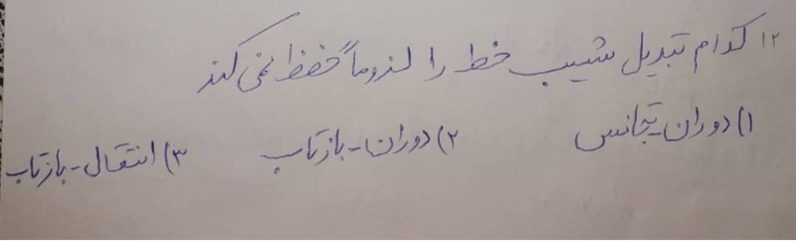 ۱۲ کدام تبدیل شیب خط را لزوماً حفظ نمی کند
۱) دوران-تجانس ۲) دوران-بازتاب ۳) انتقال-بازتاب